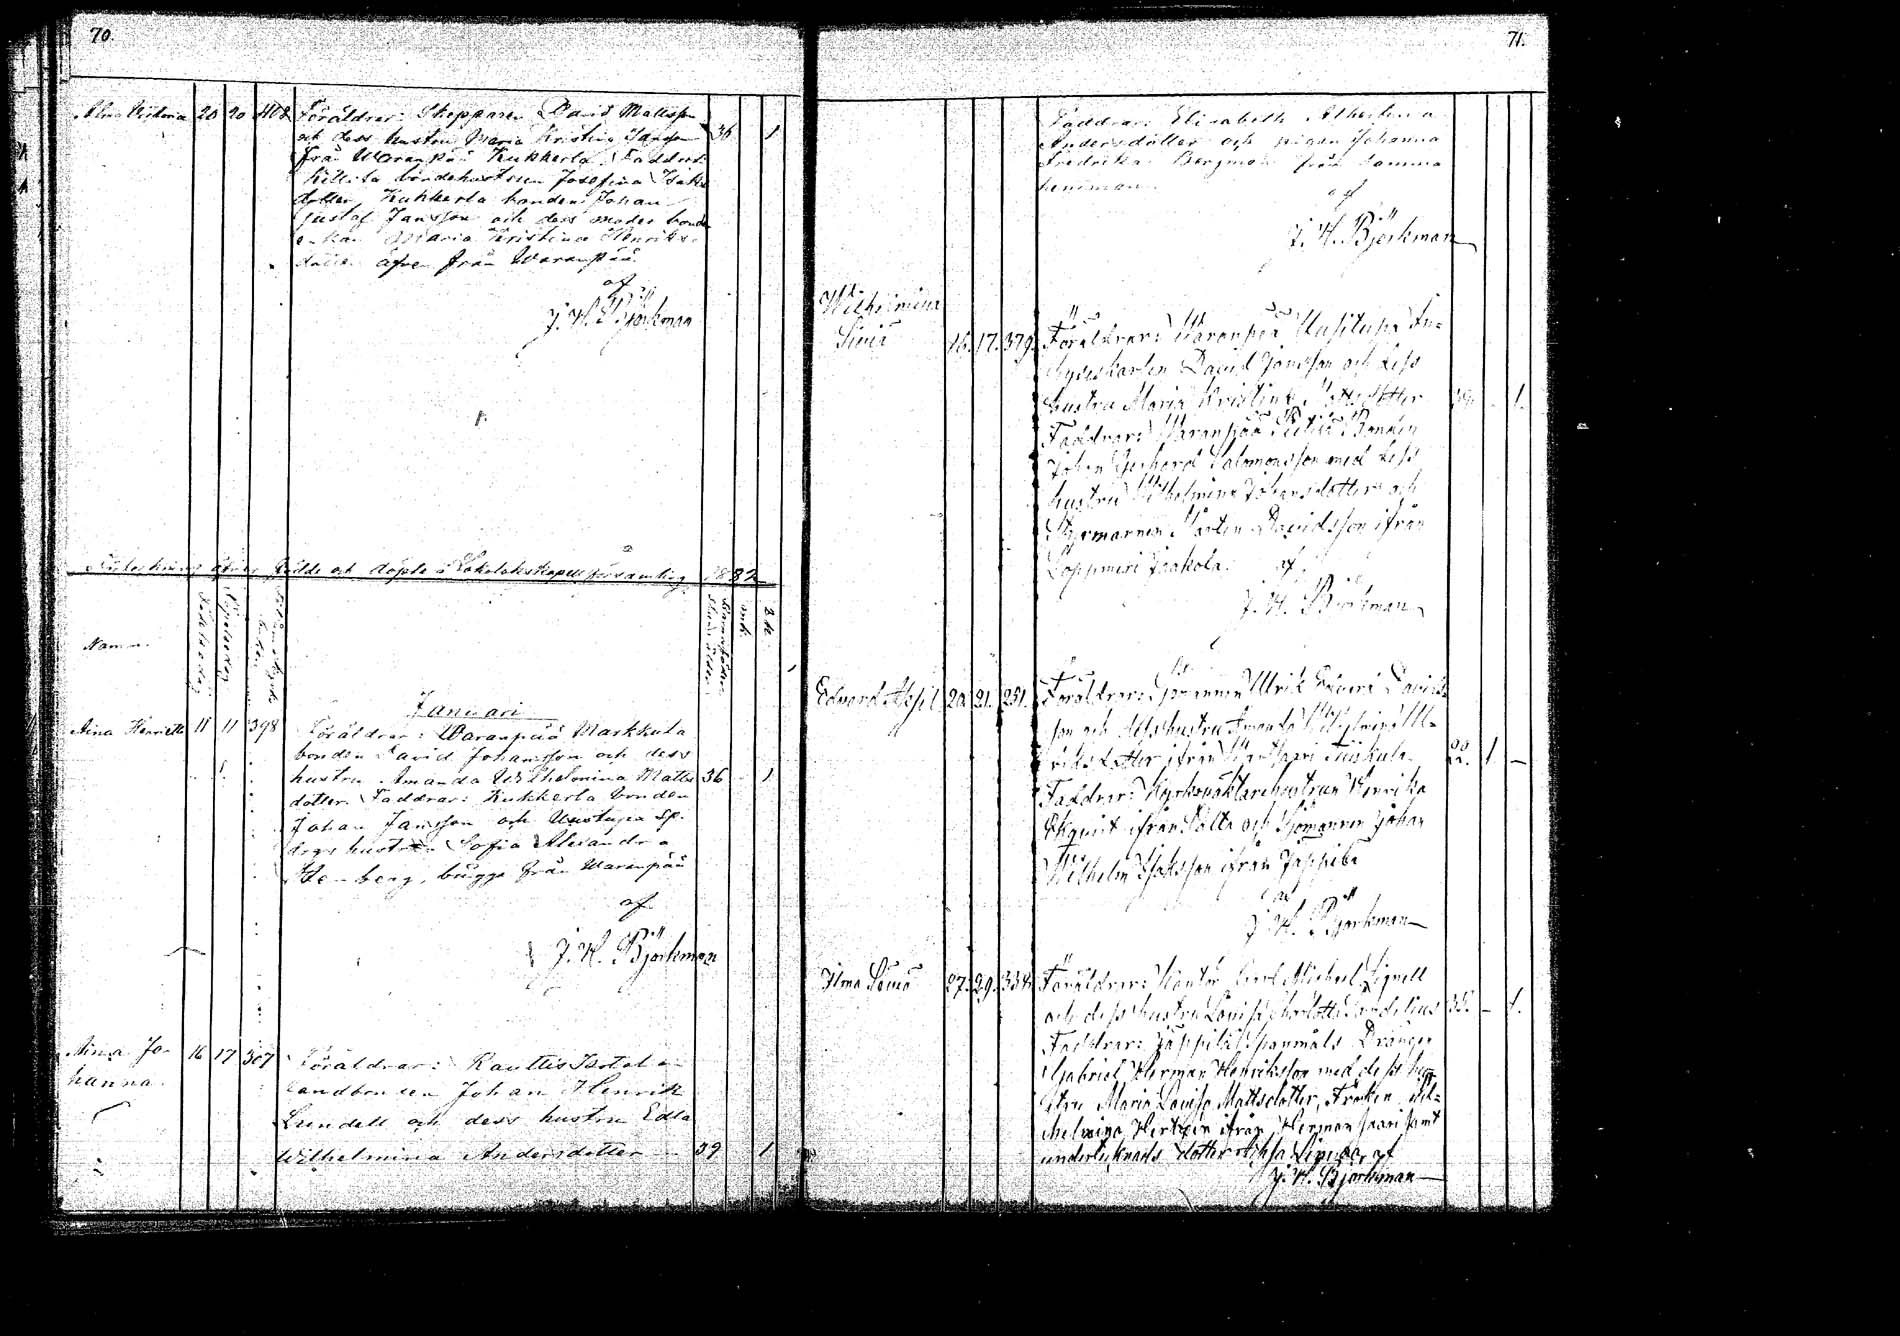 70.
Alma Wiktoria 20 20 408 Föräldrar: Skepparen David Mattsson 36 1
och dess hustru Maria Kristina Jansson
från Waranpää Kukkerla. Faddrar:
bondehustrun Josefina Isaks
dotter, Kukkerla bonden Johan
Gustaf Jansson och dess moder bonde
enkan Maria Kristina Henriks
dotter äfven från Waranpää
af
J. H. Björkman
födde och döpte i Lokalaks kapellförsamling 1882
Namn. Födelsedag
Januari
Aina Henrietta 11 11 398 Föräldrar: Waranpää Markkula
bonden David Johansson och dess
hustru Amanda Wilhelmina Matts 36 1
dotter. Faddrar: Kukkerla bonden
Johan Jansson och Uusitupa
hustru Sofia Alexandra
Stenberg, bägge från Waranpää
af
J. H. Björkman
Aina Jo- 16 17 307 Föräldrar: Rauttis
hanna landbonden Johan Henrik
Lundell och dess hustru Edla
Wilhelmina Andersdotter 39 1
71.
Faddrar: Elisabeth Albertina
Andersdotter och pigan Johanna
Fredrika Bergman från samma
hemman.
af
J. H. Björkman
Wilhelmina
Siviä 16. 17. 379. Föräldrar: Waranpää Uusitupa In-
hyseskarlen David Jansson och dess
hustru Maria Kristina Mattsdotter - 1.
Faddrar: Waranpää Bonden
Johan Gerhard Salomonsson med dess
hustru Wilhelmina Johansdotter och
Styrmannen Mårten Davidsson ifrån
Jaakola. af.
J. H. Björkman
Edvard Axsel 20. 21. 251. Föräldrar: Sjömannen Ulrik Edvard Davids-
son och dess hustru Amanda Wilhelmina Ul-
riksdotter ifrån 22. 1 -
Faddrar: Kyrkovaktarehustrun Henrika
Ekquist ifrån Pälta och Sjömannen Johan
Wilhelm Isaksson ifrån Jäppilä
af
J. H. Björkman
Ilma Lovisa 27. 29. 334. Föräldrar: Kantor Carl Michael Lignell
och dess hustru Lovisa Charlotta 35. - 1.
Faddrar: Jäppilä Sponmåls Drängen
Gabriel Herman Henriksson med dess hu-
stru Maria Lovisa Mattsdotter, Fröken Wil-
helmina Hertzen ifrån Hermansaari samt
undertecknads dotter af
J. H. Björkman